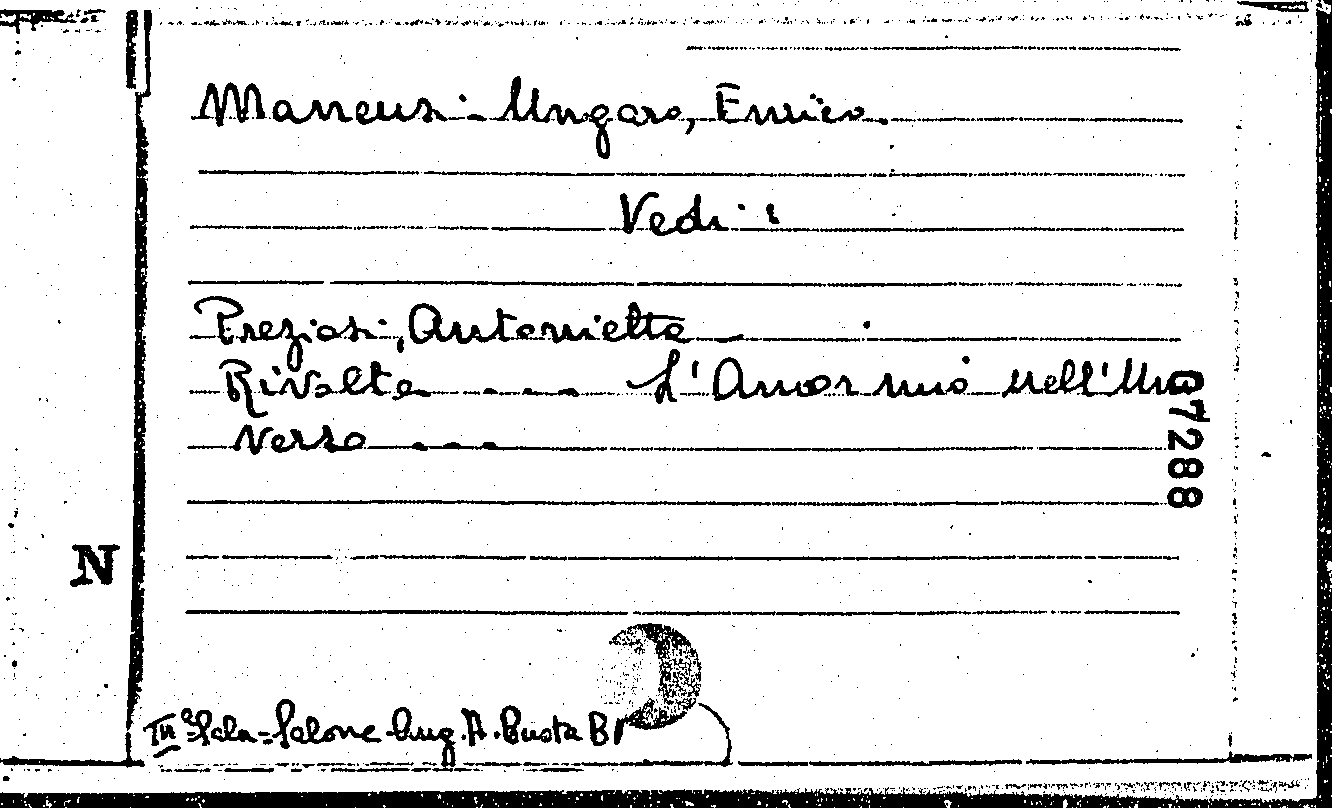 Mancusi-Ungaro, Enrico.
Vedi:
Preziosi, Antonietta
Rivolta --- L'Amor mio nell'Uni
verso ---
07288
N
IIIª Sala=Salone Ang. A. Busta B1